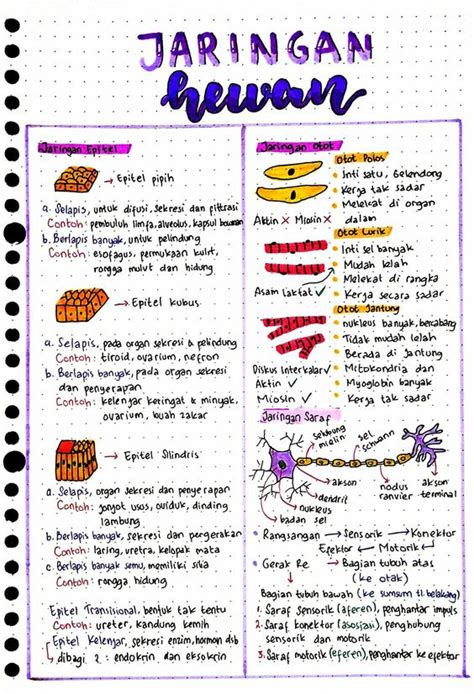 JARINGAN
hewan
Jaringan Epitel
→ Epitel pipih
a. Selapis, untuk difusi, sekresi dan filtrasi
Contoh: pembuluh limfa, alveolus, kapsul bowman
b. Berlapis banyak, untuk pelindung
Contoh: esofagus, permukaan kulit,
rongga mulut dan hidung
→ Epitel kubus
a. Selapis, pada organ sekresi & pelindung
Contoh: tiroid, ovarium, nefron
b. Berlapis banyak, pada organ sekresi
dan penyerapan
Contoh: kelenjar keringat & minyak,
ovarium, buah zakar
→ Epitel Silindris
a. Selapis, organ sekresi dan penyerapan
Contoh: jonjot usus, oviduk, dinding
lambung
b. Berlapis banyak, sekresi dan pergerakan
Contoh: laring, uretra, kelopak mata
c. Berlapis banyak semu, memiliki silia
Contoh: rongga hidung
Epitel Transisional, bentuk tak tentu
Contoh: ureter, kandung kemih
Epitel Kelenjar, sekresi enzim, hormon dsb
↳ dibagi 2 : endokrin dan eksokrin
Jaringan Otot
Otot Polos
• Inti satu, Gelendong
• Kerja tak sadar
• Melekat di organ
dalam
Aktin X Miosin X
Otot Lurik
• Inti sel banyak
• Mudah lelah
• Melekat di rangka
• Kerja secara sadar
Asam Laktat ✓
Otot Jantung
• nukleus banyak, bercabang
• Tidak mudah lelah
• Berada di Jantung
• Mitokondria dan
Myoglobin banyak
• Kerja tak sadar
Diskus Interkalar ✓
Aktin ✓
Miosin ✓
Jaringan Saraf
selubung
mielin
sel
schwann
akson
nodus
ranvier
akson
terminal
dendrit
nukleus
badan sel
• Rangsangan → Sensorik → Konektor
Efektor ← Motorik ↓
• Gerak Re → Bagian tubuh atas
(ke otak)
Bagian tubuh bawah (ke sumsum tl. belakang)
1. Saraf Sensorik (aferen), penghantar impuls
2. Saraf konektor (asosiasi), penghubung
sensorik dan motorik
3. Saraf motorik (eferen), penghantar ke efektor